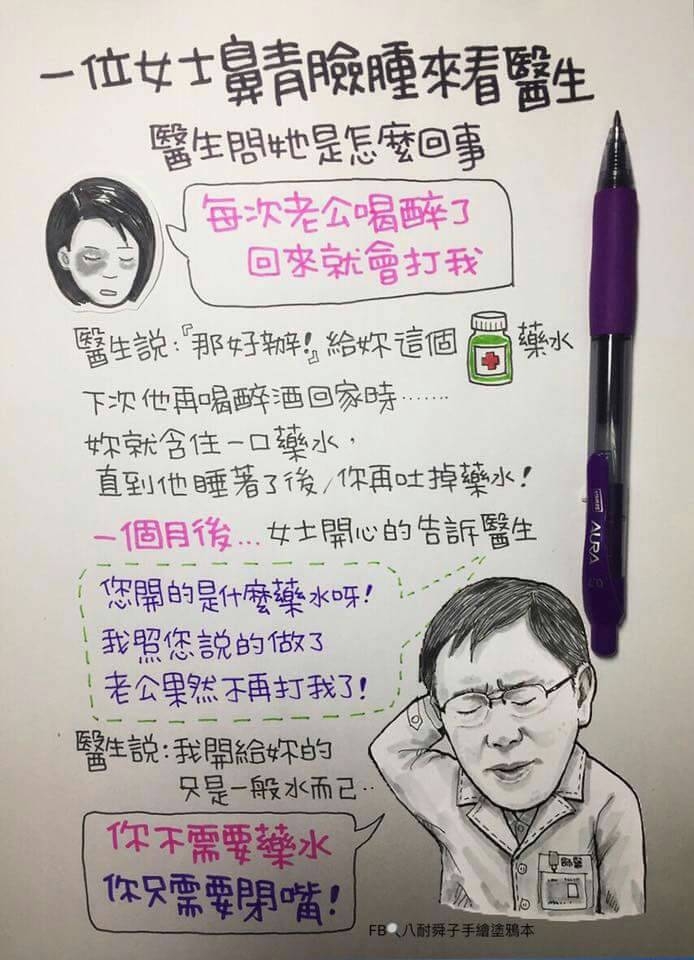 一位女士鼻青臉腫來看醫生
醫生問她是怎麼回事
每次老公喝醉了
回來就會打我
醫生說：『那好辦！』給妳這個藥水
下次他再喝醉酒回家時……
妳就含住一口藥水，
直到他睡著了後，你再吐掉藥水！
一個月後...女士開心的告訴醫生
您開的是什麼藥水呀！
我照您說的做了
老公果然不再打我了！
醫生說：我開給妳的
只是一般水而已..
你不需要藥水
你只需要閉嘴！
師醫
FB 八耐舜子手繪塗鴉本
AURA